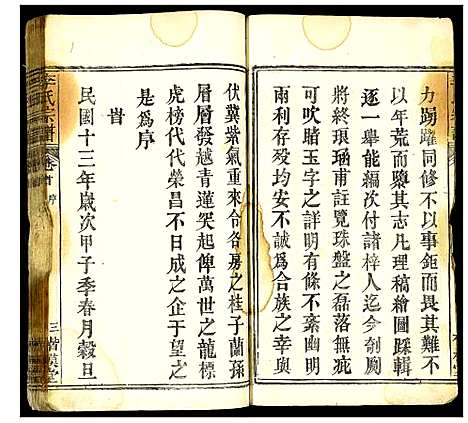 力踴躍同修不以事鉅而畏其難不
以年荒而隳其志凡理稿繪圖踩輯
逐一舉能編次付諸梓人迄今剞劂
將終琅璚甫註覽珠盤之磊落無疵
可吹瞻玉字之詳明有條不紊幽明
兩利存殁均安不誠爲合族之幸與
伏冀紫氣重來令各房之桂子蘭孫
層層發越青蓮突起俾萬世之龍標
虎榜代代榮昌不日成之企于望之
是爲序
旹
民國十三年歲次甲子季春月穀旦
李氏宗譜
卷首
序
三